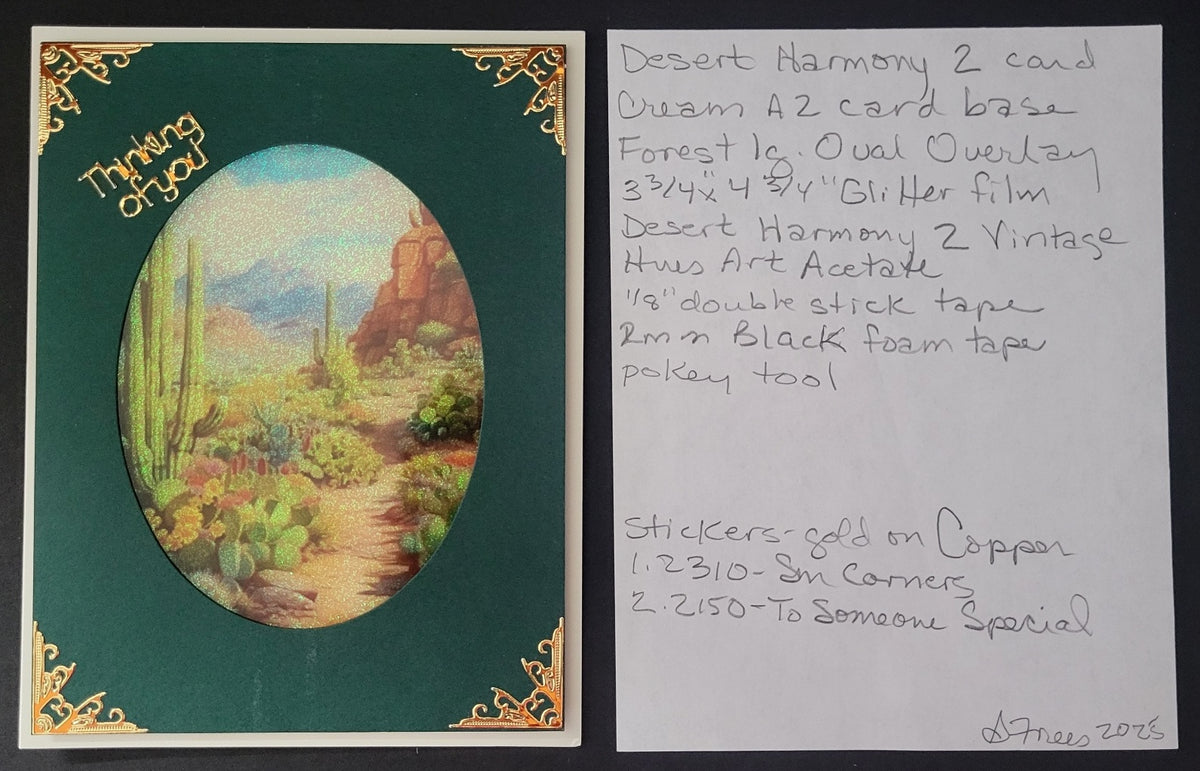 Thinking
of you
Desert Harmony 2 card
Cream A2 card base
Forest lg. Oval Overlay
3 3/4" x 4 3/4" Glitter film
Desert Harmony 2 Vintage
Hues Art Acetate
"1/8" double stick tape
2mm Black foam tape
pokey tool
Stickers - gold on Copper
1. 2310 - Sm Corners
2. 2150 - To Someone Special
SFrees 2025